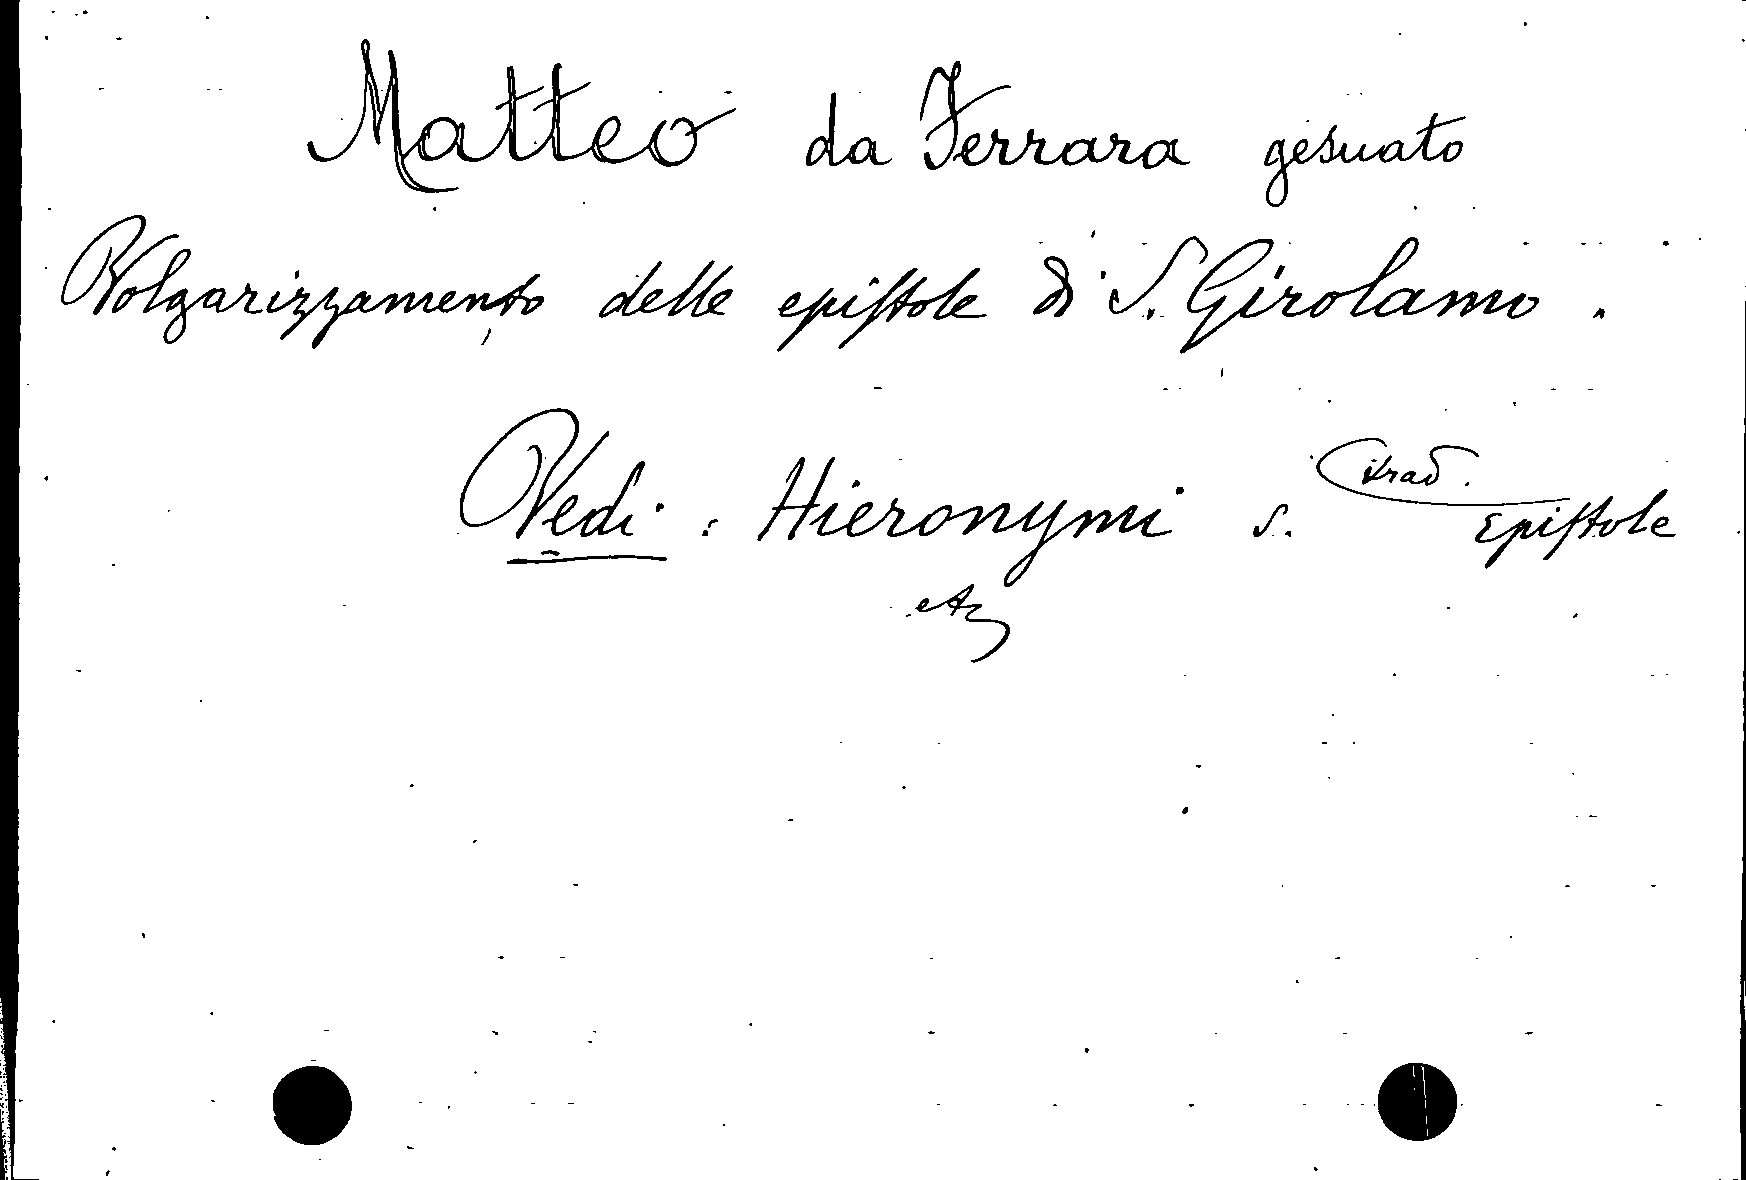 Matteo da Ferrara gesuato
Volgarizzamento delle epistole di S. Girolamo.
Vedi: Hieronymi S. (trad. Epistole
etc